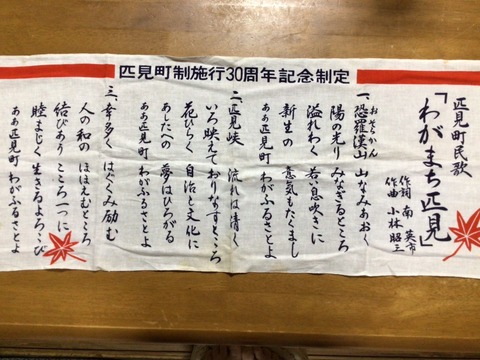 匹見町制施行30周年記念制定
匹見町民歌
「わがまち匹見」
作詞 南 英市
作曲 小林 昭三
おそらかん
一、恐羅漢山 山なみあおく
陽の光り みなぎるところ
溢れわく 若い息吹きに
新生の 意気もたくまし
ああ匹見町 わがふるさとよ
二、匹見峡 流れは清く
いろ映えて おりなすところ
花ひらく 自治と文化に
あしたへの 夢はひろがる
ああ匹見町 わがふるさとよ
三、幸多く はぐくみ励む
人の和の ほほえむところ
結びあう こころ一つに
睦まじく 生きるよろこび
ああ匹見町 わがふるさとよ